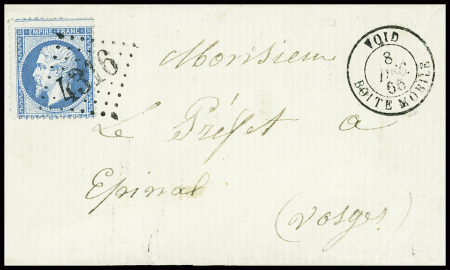 EMPIRE FRANC
4316
VOID
8
DEC.
66
BOITE MOBILE
Monsieur
Le Préfet a
Epinal
(Vosges)